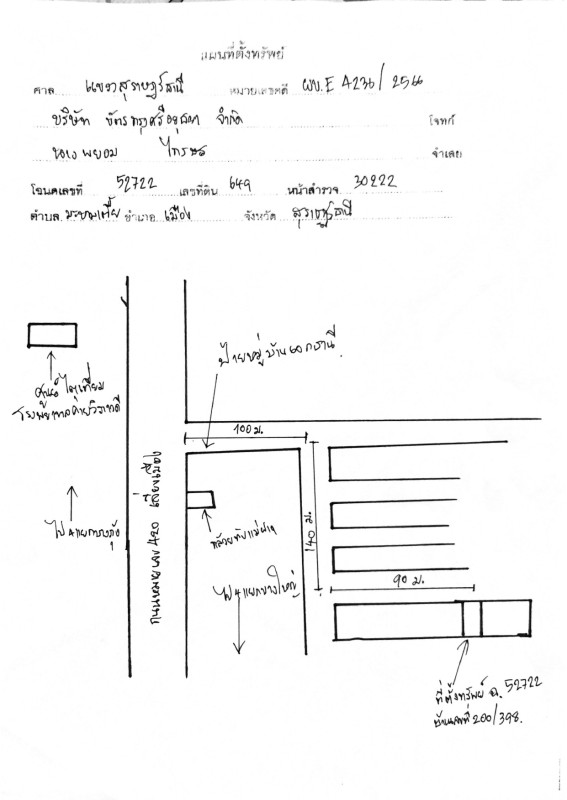 แผนที่ตั้งทรัพย์
ศาล แขวงสุราษฎร์ธานี หมายเลขคดี ผบ.E 4236/2566
บริษัท บัตรกรุงศรีอยุธยา จำกัด โจทก์
นางพยอม ไกร จำเลย
โฉนดเลขที่ 52722 เลขที่ดิน 649 หน้าสำรวจ 30222
ตำบล มะขามเตี้ย อำเภอ เมือง จังหวัด สุราษฎร์ธานี
ป้ายหมู่บ้าน
ศูนย์ไตเทียม
โรงพยาบาลค่ายวิภาวดี
100 ม.
ถนนหมายเลข 420 เลี่ยงเมือง
ไป 4 แยกบางกุ้ง
140 ม.
ไป 4 แยกบางใหญ่
90 ม.
ที่ตั้งทรัพย์ ฉ. 52722
บ้านเลขที่ 200/398.